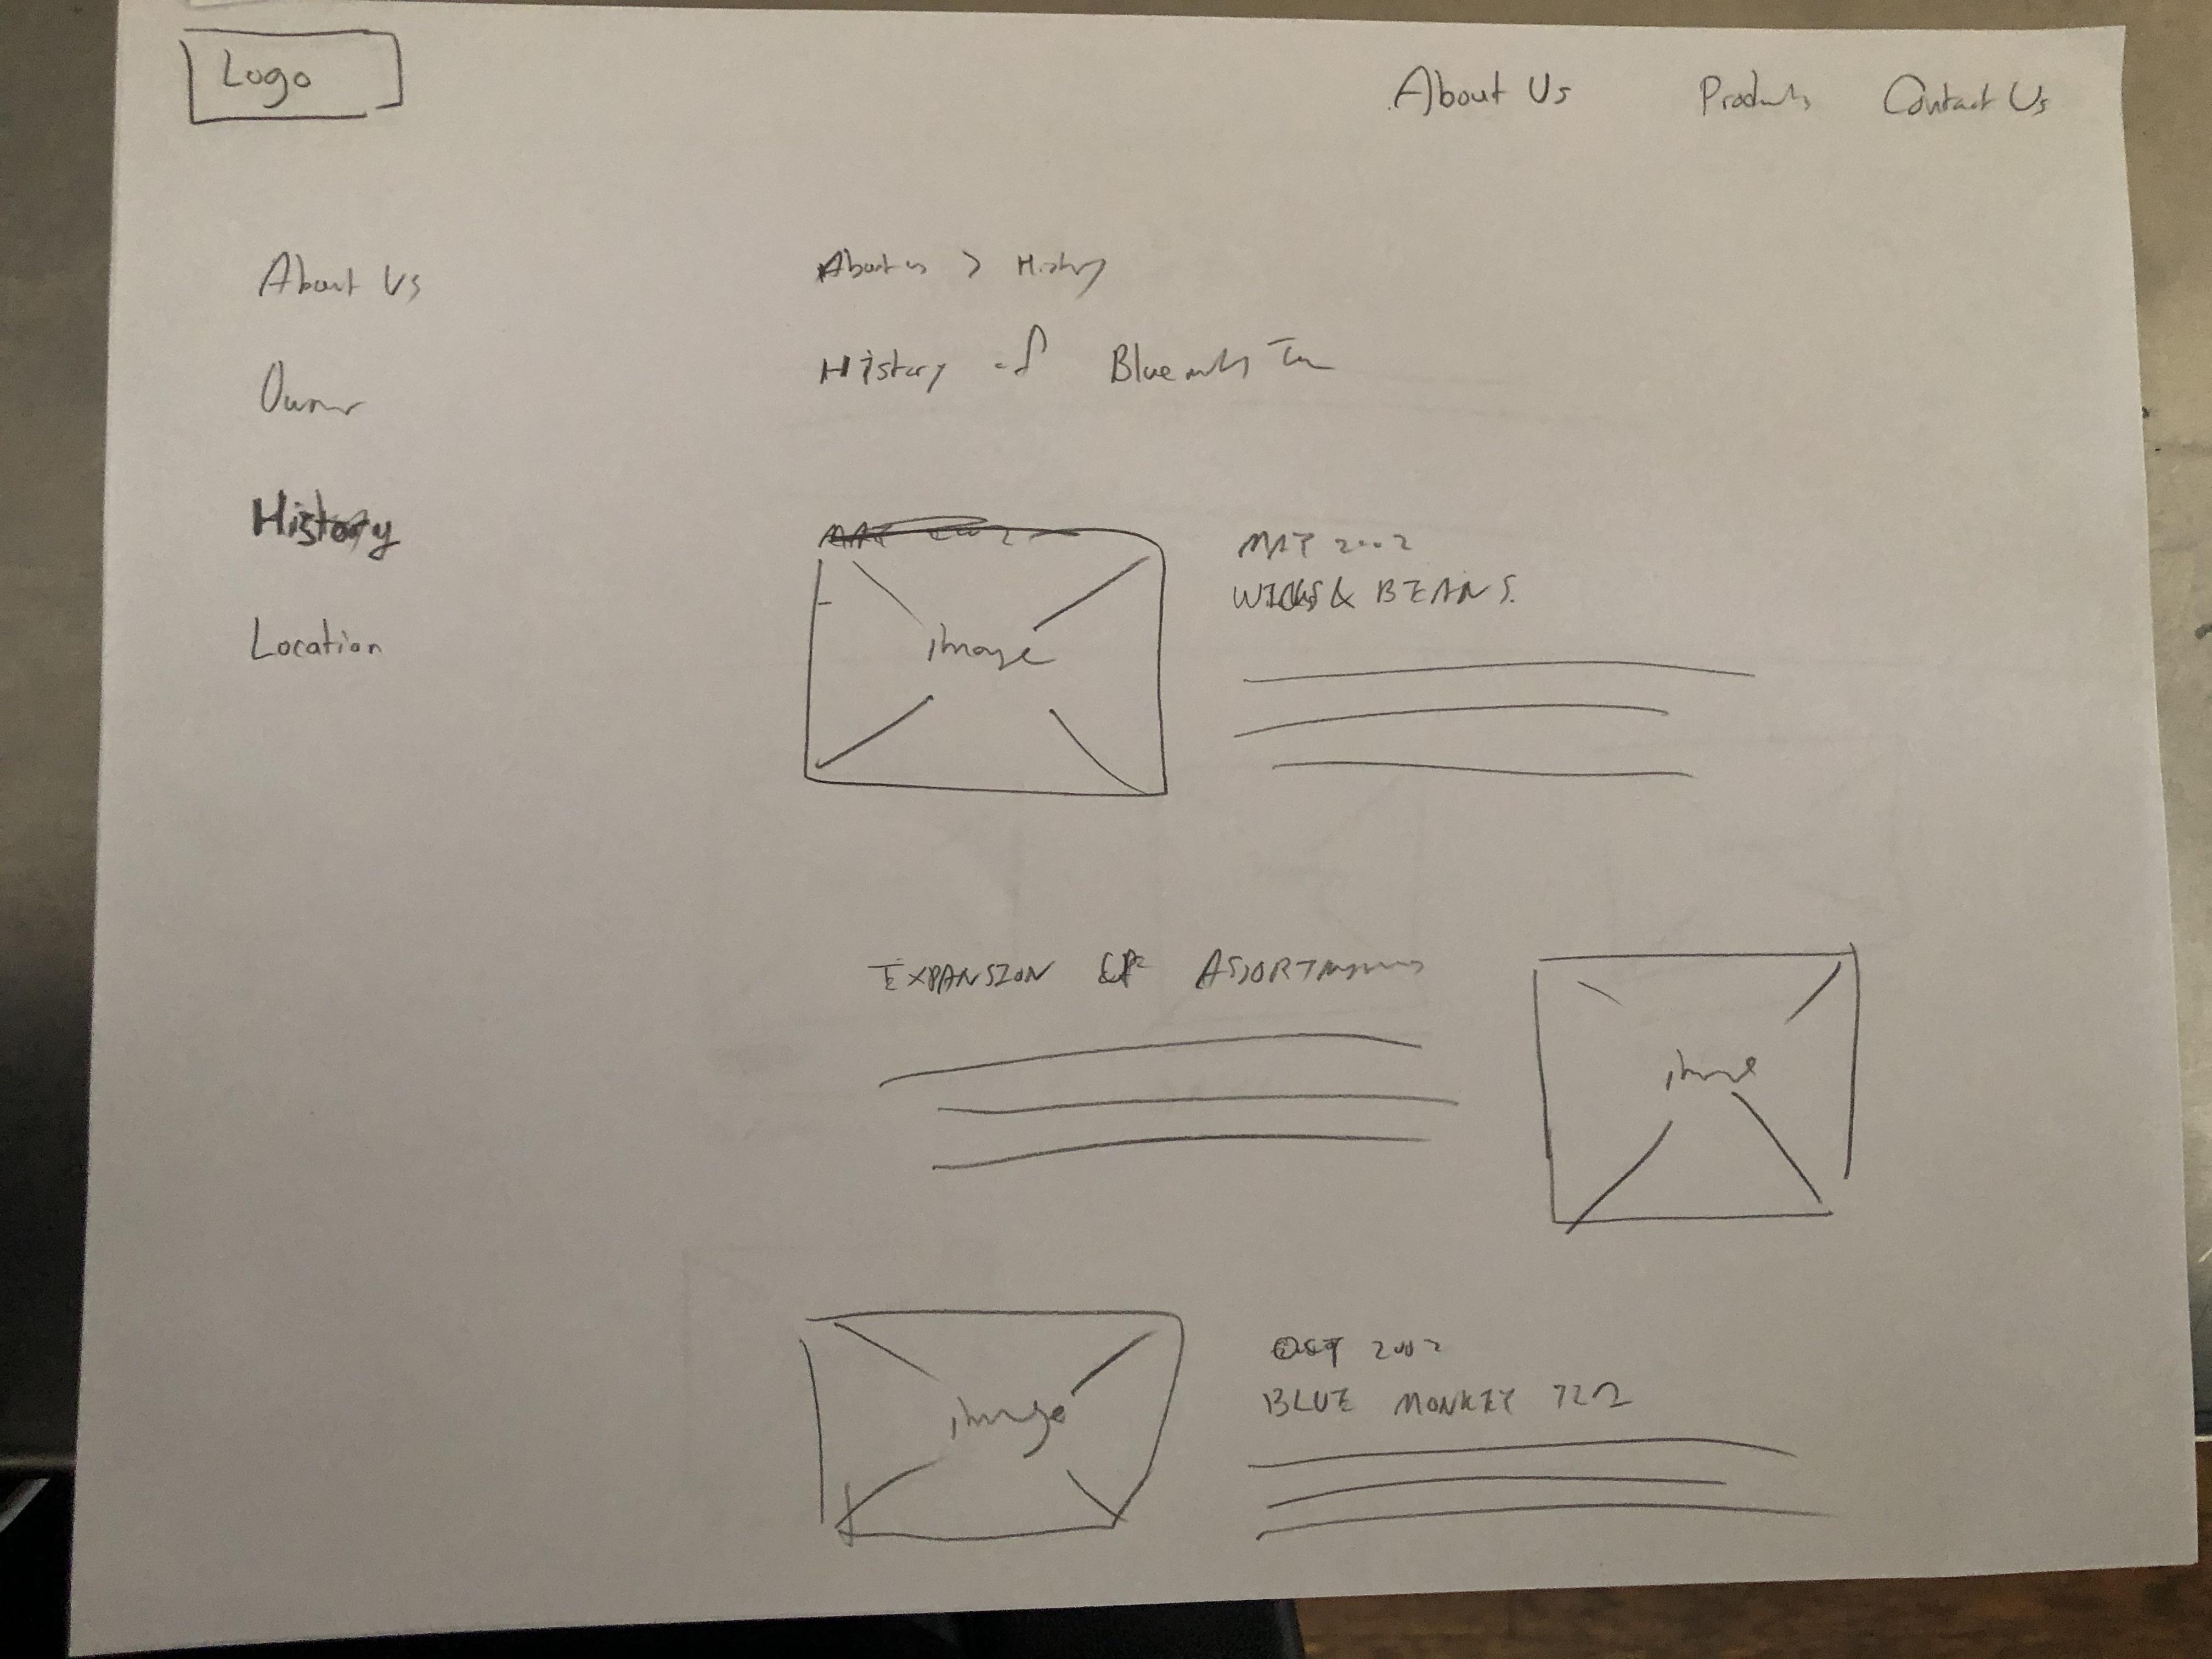 Logo
About Us Products Contact Us
About Us
Owner
History
Location
About us > History
History of Blue
image
MAY 2002
WICKS & BEANS.
EXPANSION OF
image
image
OCT 2002
BLUE MONKEY